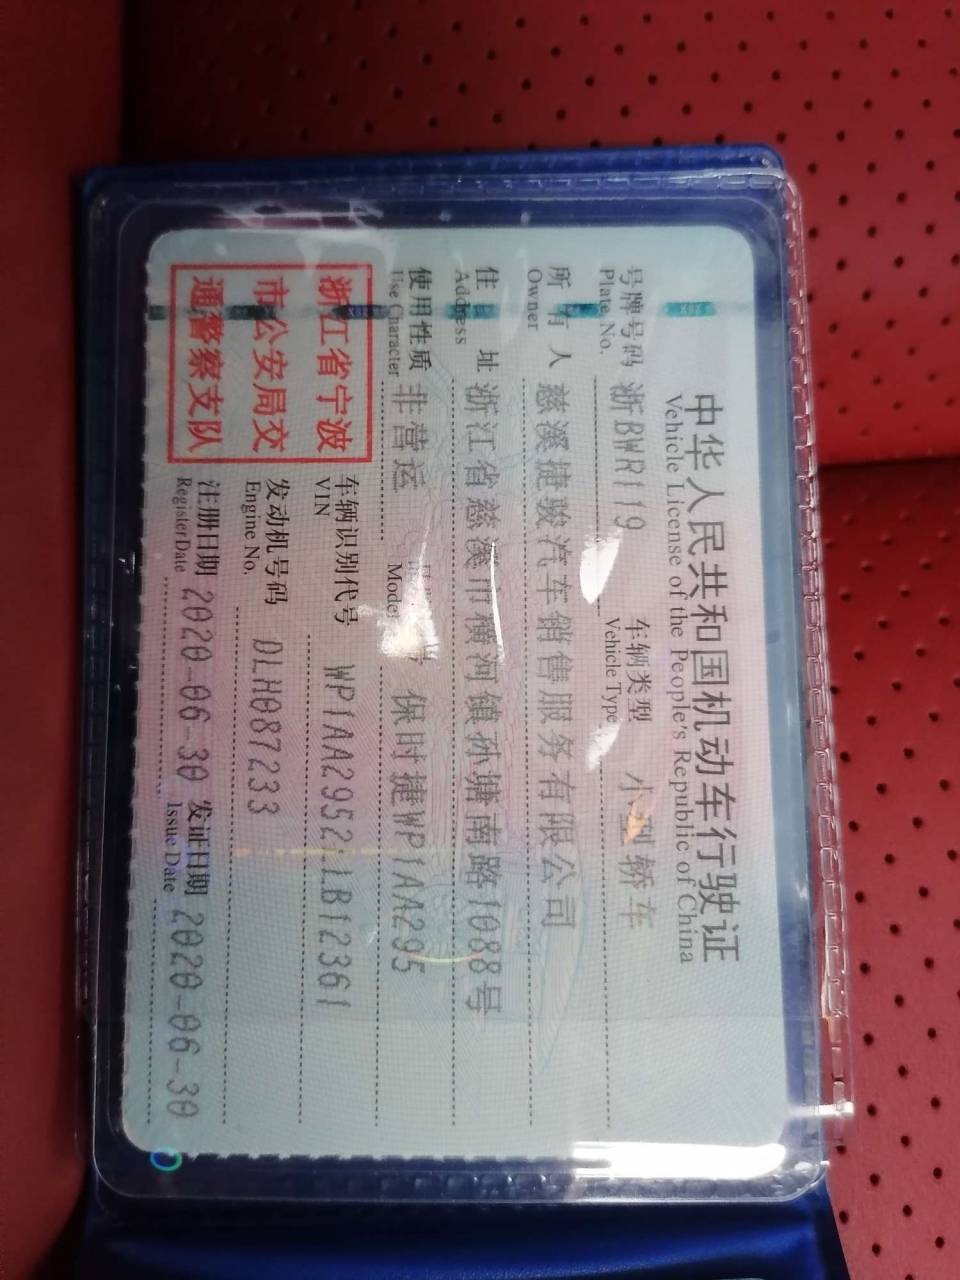 中华人民共和国机动车行驶证
Vehicle License of the People's Republic of China
号牌号码 浙BWR119 车辆类型 小型轿车
Plate No. Vehicle Type
所有人 慈溪捷骏汽车销售服务有限公司
Owner
住址 浙江省慈溪市横河镇孙塘南路1088号
Address
使用性质 非营运 号 保时捷WP1AA295
Use Character Model
浙江省宁波
市公安局交
通警察支队
车辆识别代号 WP1AA2952LLB12361
VIN
发动机号码 DLH087233
Engine No.
注册日期 2020-06-30 发证日期 2020-06-30
Register Date Issue Date